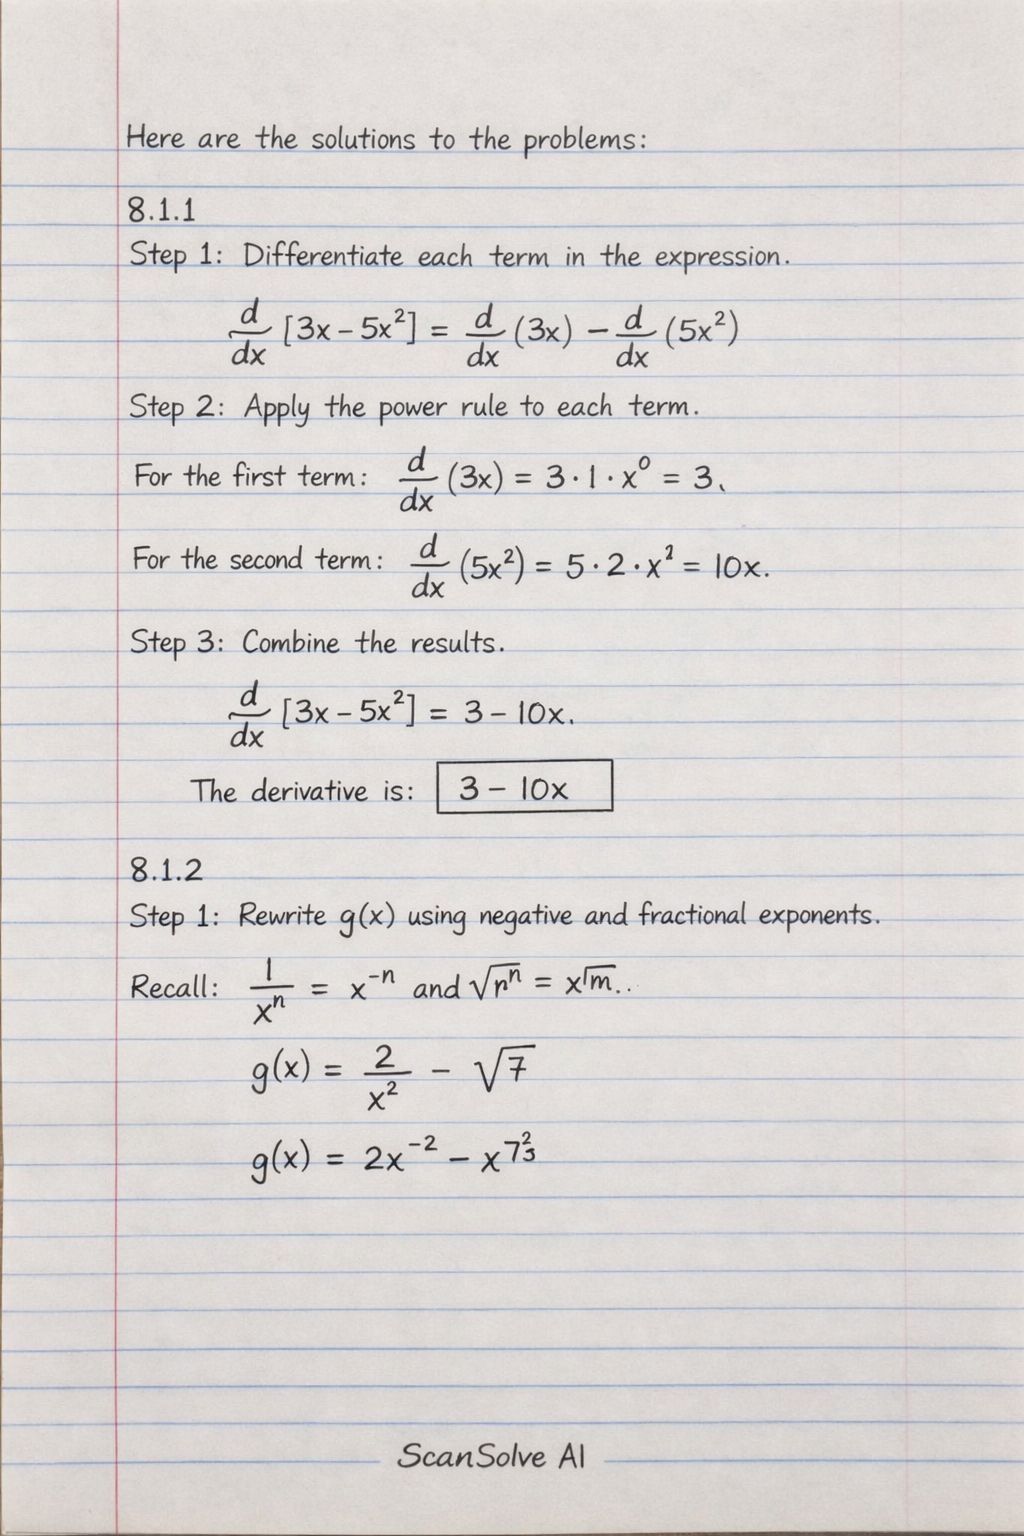 Here are the solutions to the problems:
8.1.1
Step 1: Differentiate each term in the expression.
d/dx [3x – 5x²] = d/dx (3x) – d/dx (5x²)
Step 2: Apply the power rule to each term.
For the first term: d/dx (3x) = 3 · 1 · x⁰ = 3、
For the second term: d/dx (5x²) = 5 · 2 · x² = 10x.
Step 3: Combine the results.
d/dx [3x – 5x²] = 3 – 10x.
The derivative is: 3 – 10x
8.1.2
Step 1: Rewrite g(x) using negative and fractional exponents.
Recall: 1/xⁿ = x⁻ⁿ and √nⁿ = x√m..
g(x) = 2/x² – √7
g(x) = 2x⁻² – x7^2/3
ScanSolve AI